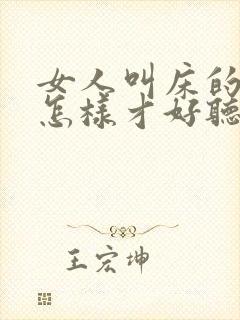 女人叫床的
怎樣才好聽
王宏坤